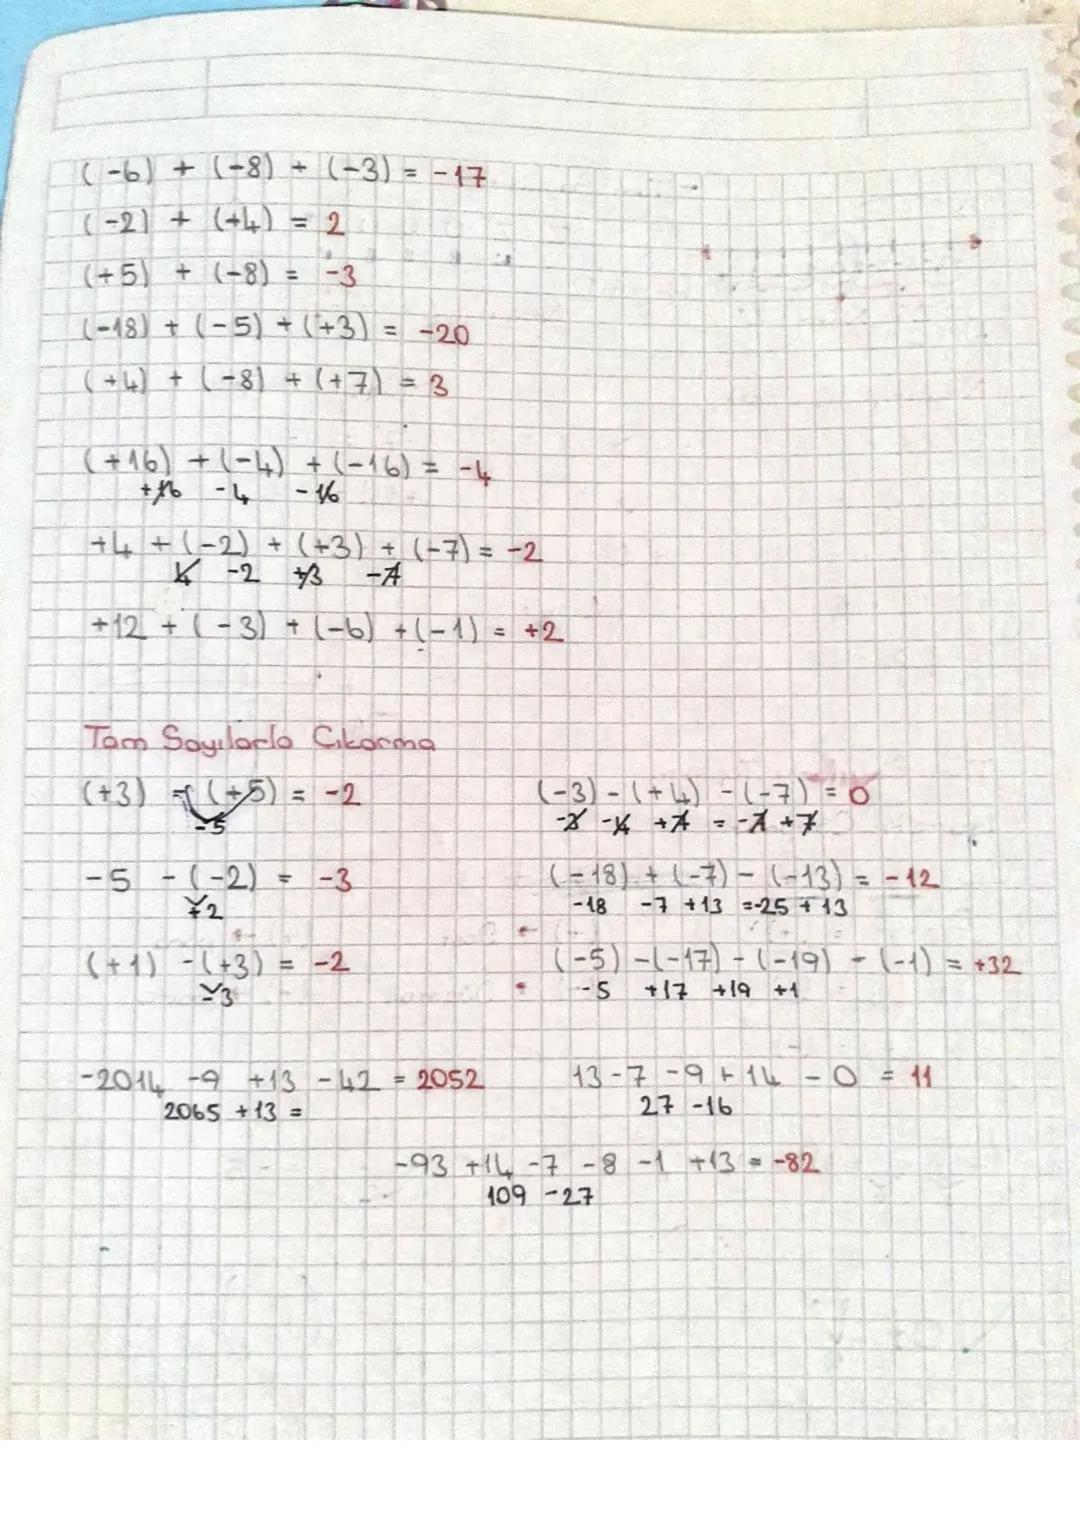 (-6) + (-8) + (-3) = -17
(-2) + (+4) = 2
(+5) + (-8) = -3
(-18) + (-5) + (+3) = -20
(+4) + (-8) + (+7) = 3
(+16) + (-4) + (-16) = -4
+16 -4 -16
+4 + (-2) + (+3) + (-7) = -2
4 -2 +3 -7
+12 + (-3) + (-6) + (-1) = +2
Tam Sayılarla Çıkarma
(+3) - (+5) = -2
-5
(-3) - (+4) - (-7) = 0
-3 -4 +7 = -7 +7
-5 - (-2) = -3
+2
(-18) + (-7) - (-13) = -12
-18 -7 +13 =-25 + 13
(+1) - (+3) = -2
-3
(-5) - (-17) - (-19) - (-1) = +32
-5 +17 +19 +1
-2014 -9 +13 -42 = 2052
2065 +13 =
13 -7 -9 + 14 - 0 = 11
27 -16
-93 +14 -7 -8 -1 +13 = -82
109 -27